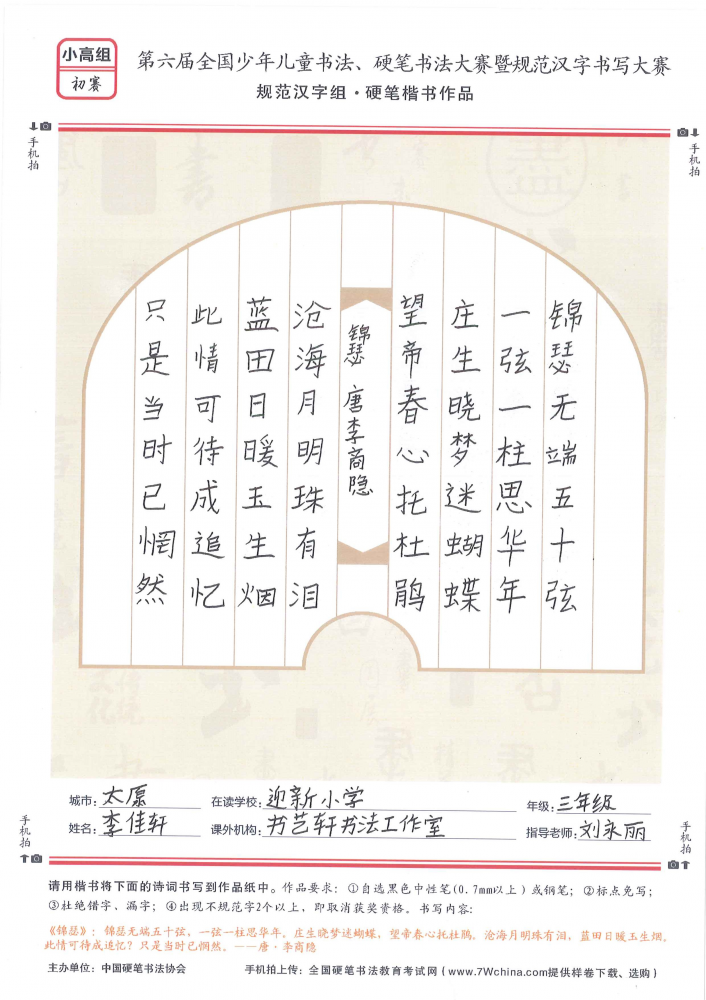 小高组
初赛
第六届全国少年儿童书法、硬笔书法大赛暨规范汉字书写大赛
规范汉字组·硬笔楷书作品
手机拍
手机拍
锦瑟无端五十弦
一弦一柱思华年
庄生晓梦迷蝴蝶
望帝春心托杜鹃
锦瑟 唐李商隐
沧海月明珠有泪
蓝田日暖玉生烟
此情可待成追忆
只是当时已惘然
城市：太原 在读学校：迎新小学 年级：三年级
姓名：李佳轩 课外机构：书艺轩书法工作室 指导老师：刘永丽
手机拍
手机拍
请用楷书将下面的诗词书写到作品纸中。作品要求：①自选黑色中性笔(0.7mm以上）或钢笔；②标点免写；
③杜绝错字、漏字；④出现不规范字2个以上，即取消获奖资格。书写内容：
《锦瑟》：锦瑟无端五十弦，一弦一柱思华年。庄生晓梦迷蝴蝶，望帝春心托杜鹃。沧海月明珠有泪，蓝田日暖玉生烟。
此情可待成追忆？只是当时已惘然。——唐·李商隐
主办单位：中国硬笔书法协会 手机拍上传：全国硬笔书法教育考试网（www.7Wchina.com提供样卷下载、选购）